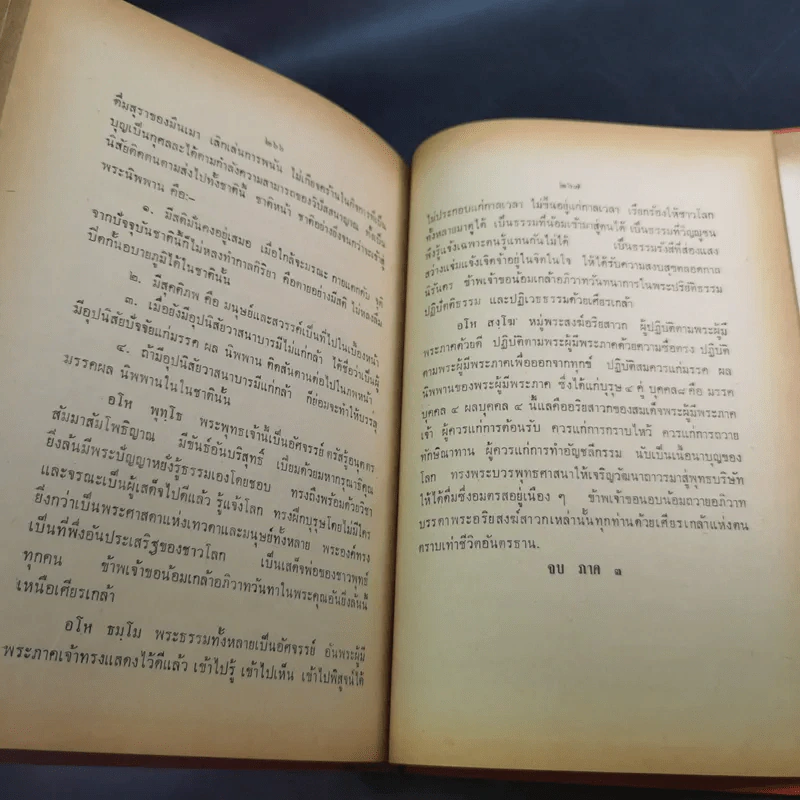 ๒๖๖
ดื่มสุราของมึนเมา เลิกเล่นการพนัน ไม่เกียจคร้านในกิจการที่เป็น
บุญเป็นกุศลละได้ตามกำลังความสามารถของวิปัสสนาญาณ ทั้งเป็น
นิสัยติดตนตามส่งไปทั้งชาตินี้ ชาติหน้า ชาติอย่างยิ่งจนกว่าจะเข้าสู่
พระนิพพาน คือ:-
๑. มีสติมั่นคงอยู่เสมอ เมื่อใกล้จะมรณะ กายแตกดับ จุติ
จากปัจจุบันชาตินี้ก็ไม่หลงทำกาลกิริยา คือตายอย่างมีสติ ไม่หลงลืม
ปิดกั้นอบายภูมิได้ในชาตินั้น
๒. มีสุคติภพ คือ มนุษย์และสวรรค์เป็นที่ไปในเบื้องหน้า
๓. เมื่อยังมีอุปนิสัยวาสนาบารมีไม่แก่กล้า ได้ชื่อว่าเป็นผู้
มีอุปนิสัยปัจจัยแก่มรรค ผล นิพพาน ติดสันดานต่อไปในภพหน้า
๔. ถ้ามีอุปนิสัยวาสนาบารมีแก่กล้า ก็ย่อมจะทำให้บรรลุ
มรรคผล นิพพานในในชาตินั้น
อโห พุทฺโธ พระพุทธเจ้านี้เป็นอัศจรรย์ ตรัสรู้อนุตตร
สัมมาสัมโพธิญาณ มีขันธ์อันบริสุทธิ์ เปี่ยมด้วยมหากรุณาธิคุณ
ยิ่งล้นมีพระปัญญาหยั่งรู้ธรรมเองโดยชอบ ทรงถึงพร้อมด้วยวิชา
และจรณะเป็นผู้เสด็จไปดีแล้ว รู้แจ้งโลก ทรงฝึกบุรุษโดยไม่มีใคร
ยิ่งกว่าเป็นพระศาสดาแห่งเทวดาและมนุษย์ทั้งหลาย พระองค์ทรง
เป็นที่พึ่งอันประเสริฐของชาวโลก เป็นเสด็จพ่อของชาวพุทธ
ทุกคน ข้าพเจ้าขอน้อมเกล้าอภิวาทวันทาในพระคุณอันยิ่งล้นนี้
เหนือเศียรเกล้า
อโห ธมฺโม พระธรรมทั้งหลายเป็นอัศจรรย์ อันพระผู้มี
พระภาคเจ้าทรงแสดงไว้ดีแล้ว เข้าไปรู้ เข้าไปเห็น เข้าไปพิสูจน์ได้
๒๖๗
ไม่ประกอบแก่กาลเวลา ไม่ขึ้นอยู่แก่กาลเวลา เรียกร้องให้ชาวโลก
ทั้งหลายมาดูได้ เป็นธรรมที่น้อมเข้ามาสู่ตนได้ เป็นธรรมที่วิญญูชน
พึงรู้แจ้งเฉพาะตนรู้แทนกันไม่ได้ เป็นธรรมรังสีที่ส่องแสง
สว่างแจ่มแจ้งเจิดจ้าอยู่ในจิตในใจ ให้ได้รับความสงบสุขตลอดกาล
นิรันดร ข้าพเจ้าขอน้อมเกล้าอภิวาทวันทนาการในพระปริยัติธรรม
ปฏิบัติธรรม และปฏิเวธธรรมด้วยเศียรเกล้า
อโห สงฺโฆ หมู่พระสงฆ์อริยสาวก ผู้ปฏิบัติตามพระผู้มี
พระภาคด้วยดี ปฏิบัติตามพระผู้มีพระภาคด้วยความซื่อตรง ปฏิบัติ
ตามพระผู้มีพระภาคเพื่อออกจากทุกข์ ปฏิบัติสมควรแก่มรรค ผล
นิพพานของพระผู้มีพระภาค ซึ่งได้แก่บุรุษ ๔ คู่ บุคคล๘ คือ มรรค
บุคคล ๔ ผลบุคคล ๔ นี้แลคืออริยสาวกของสมเด็จพระผู้มีพระภาค
เจ้า ผู้ควรแก่การต้อนรับ ควรแก่การกราบไหว้ ควรแก่การถวาย
ทักษิณาทาน ผู้ควรแก่การทำอัญชลีกรรม นับเป็นเนื้อนาบุญของ
โลก ทรงพระบวรพุทธศาสนาให้เจริญวัฒนาถาวรมาสู่พุทธบริษัท
ให้ได้ดื่มซึ่งอมตรสอยู่เนือง ๆ ข้าพเจ้าขอนอบน้อมถวายอภิวาท
บรรดาพระอริยสงฆ์สาวกเหล่านั้นทุกท่านด้วยเศียรเกล้าแห่งตน
ตราบเท่าชีวิตอันตรธาน.
จบ ภาค ๑